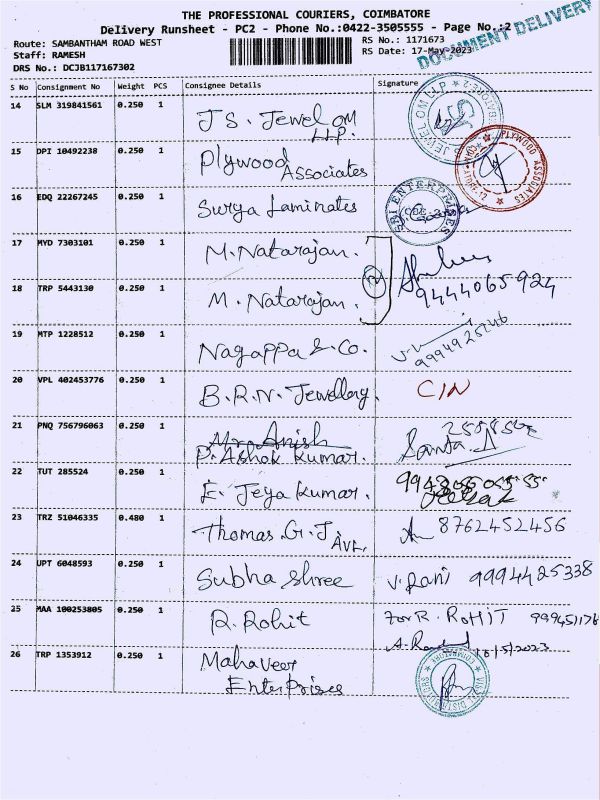 THE PROFESSIONAL COURIERS, COIMBATORE
Delivery Runsheet - PC2 - Phone No.:0422-3505555 - Page No.:2
DOCUMENT DELIVERY
Route: SAMBANTHAM ROAD WEST
RS No.: 1171673
Staff: RAMESH
RS Date: 17-May-2023
DRS No.: DCJB117167302
S No Consignment No Weight PCS Consignee Details Signature
14 SLM 319841561 0.250 1 J S. Jewel OM
LLP.
JEWEL OM LLP
15 DPI 10492238 0.250 1 Plywood
Associates
PLYWOOD ASSOCIATES
16 EDQ 22267245 0.250 1 Surya Laminates
SRI ENTERPRISES
17 MYD 7303101 0.250 1 M. Natarajan.
(2)
9444065924
18 TRP 5443130 0.250 1 M. Natarajan.
19 MTP 1228512 0.250 1 Nagappa & Co.
9994925246
20 VPL 402453776 0.250 1 B.R.N. Jewellery. CIN
21 PNQ 756796063 0.250 1 Mr. Anish
P. Ashok Kumar.
22 TUT 285524 0.250 1 E. Jeya Kumar.
23 TRZ 51046335 0.480 1 Thomas .G.J
AVL.
8762452456
24 UPT 6048593 0.250 1 Subha shree V. Rani 9994425338
25 MAA 100253805 0.250 1 R. Rohit For R. ROHIT
26 TRP 1353912 0.250 1 Mahaveer
Enterprises